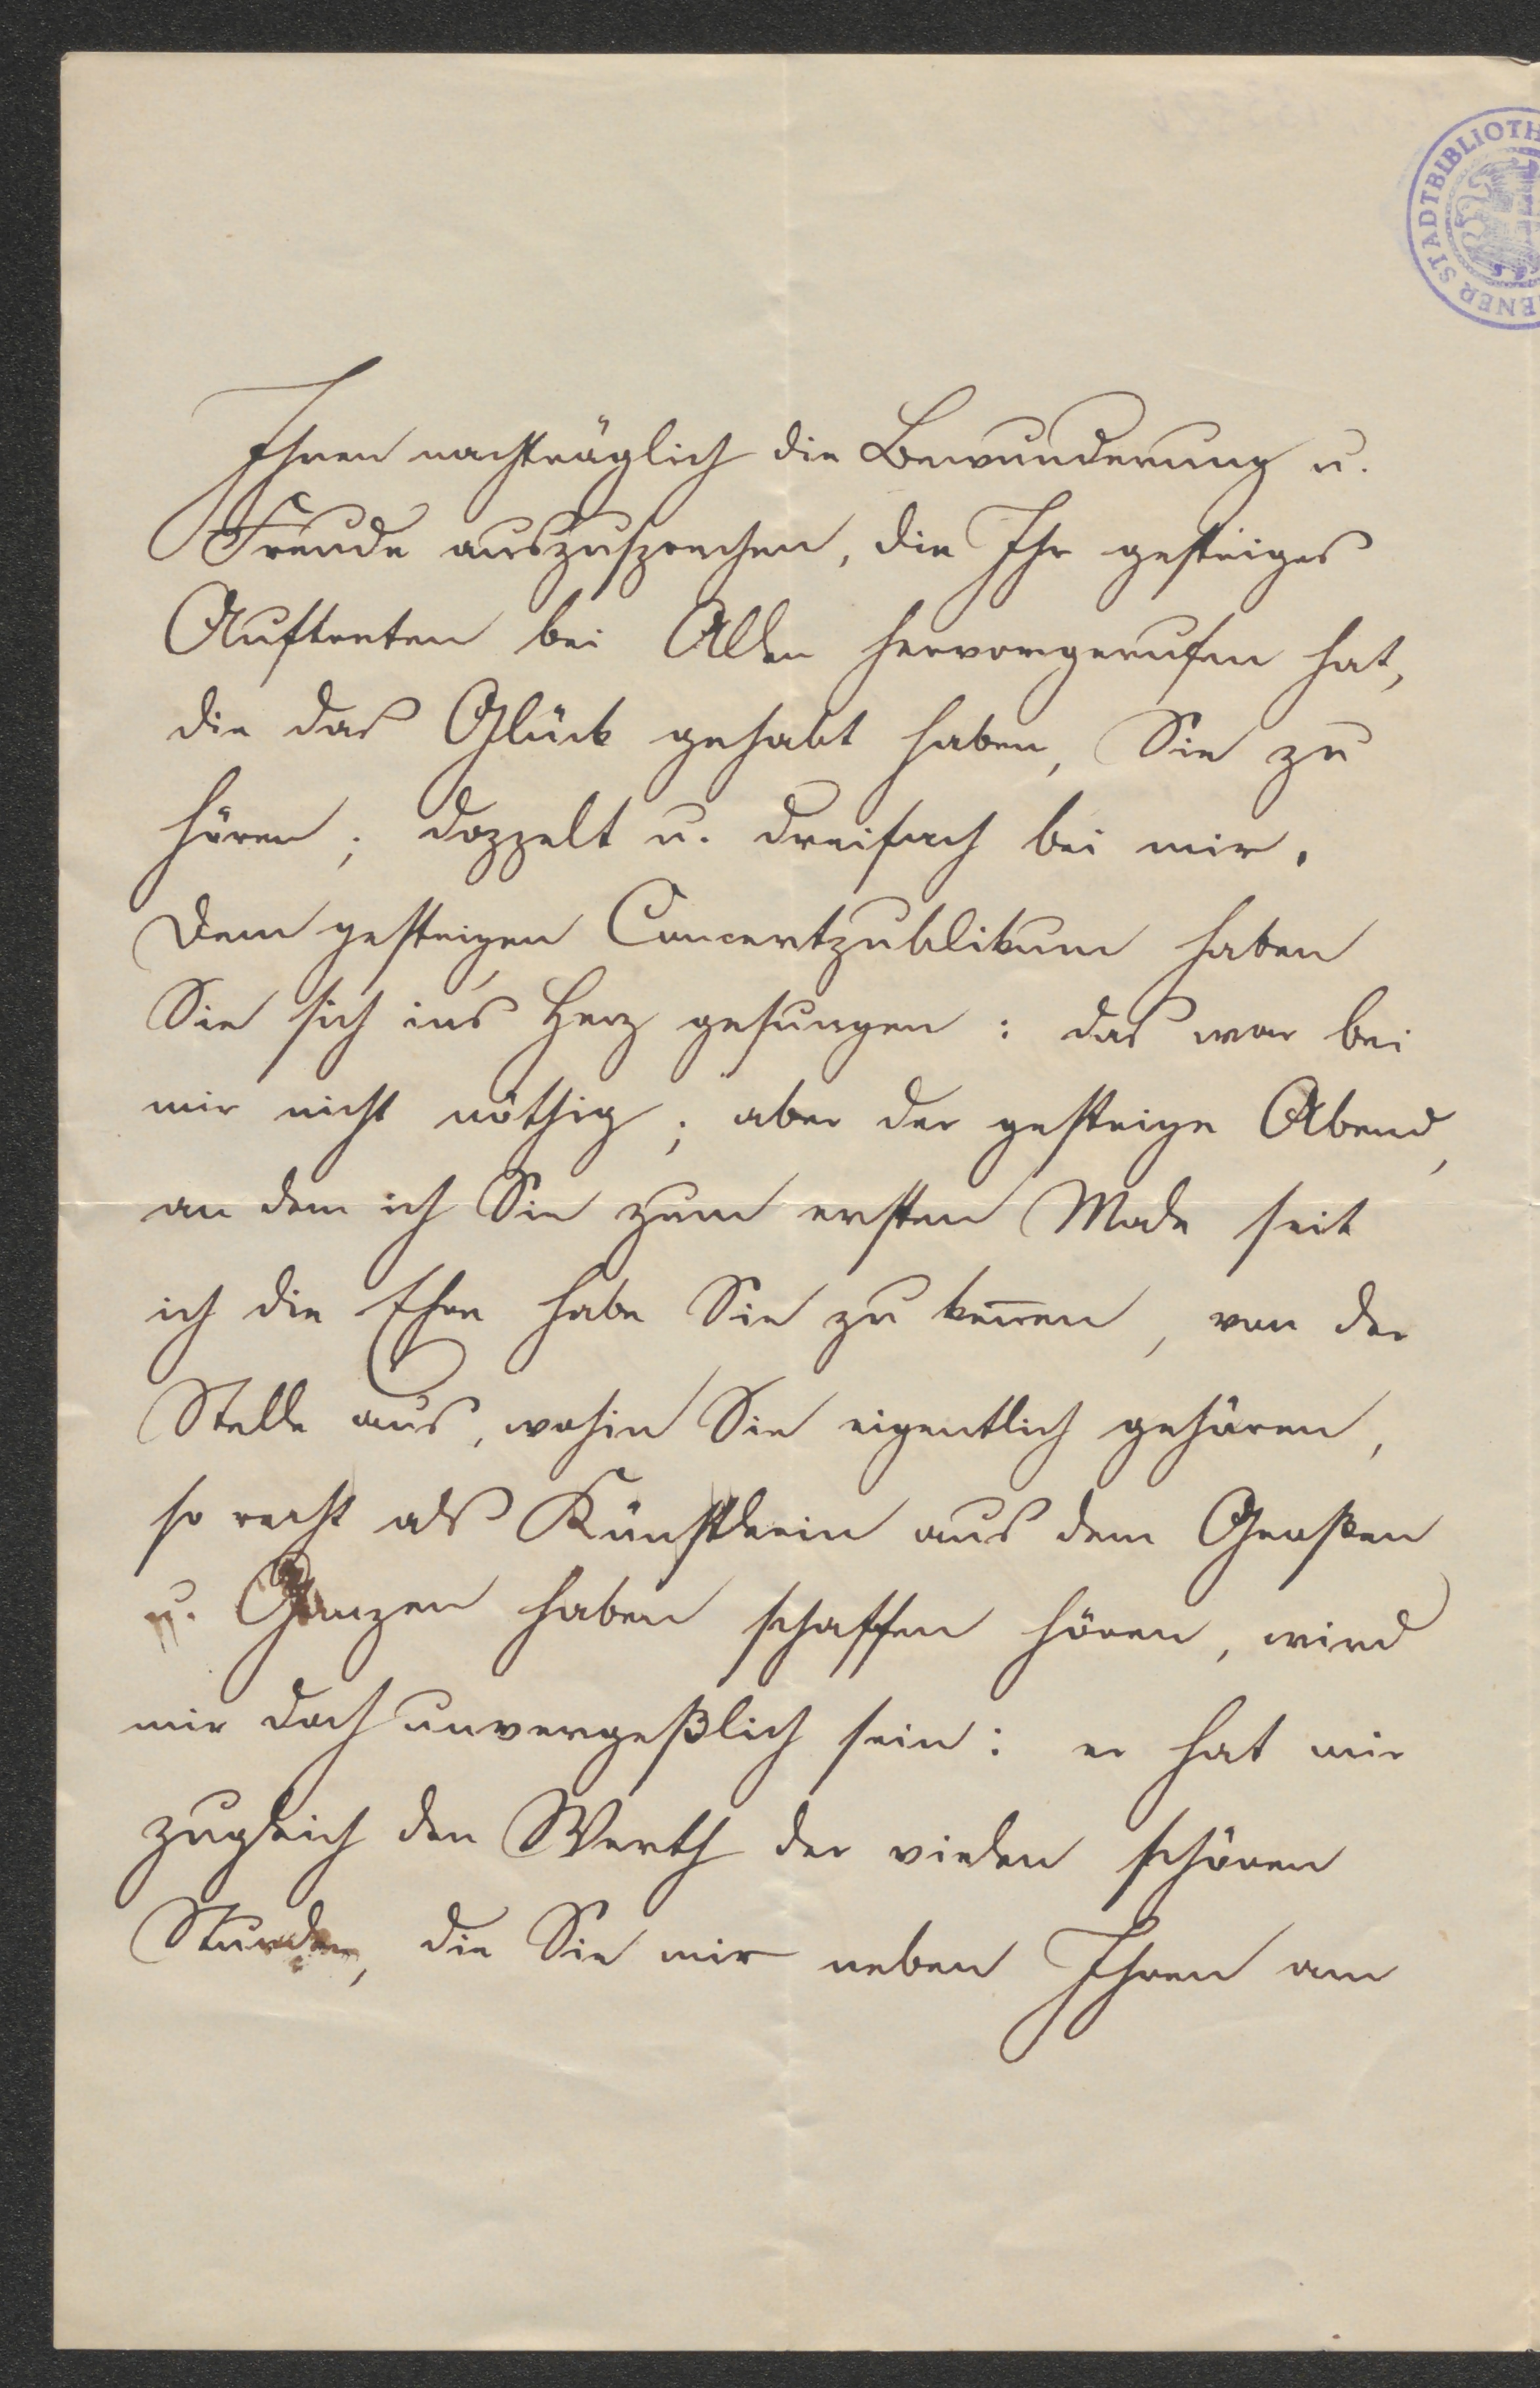 WIENER STADTBIBLIOTH
Ihnen nachträglich die Bewunderung u.
Freude auszusprechen, die Ihr gestriges
Auftreten bei Allen hervorgerufen hat,
die das Glück gehabt haben, Sie zu
hören; doppelt u. dreifach bei mir.
Dem gestrigen Concertpublikum haben
Sie sich ins Herz gesungen: das war bei
mir nicht nöthig; aber der gestrige Abend,
an dem ich Sie zum ersten Male seit
ich die Ehre habe Sie zu keñen, von der
Stelle aus, wohin Sie eigentlich gehören,
so recht als Künstlerin aus dem Großen
u. Ganzen haben schaffen hören, wird
mir doch unvergeßlich sein: er hat mir
zugleich den Werth der vielen schönen
Stunden, die Sie mir neben Ihnen am